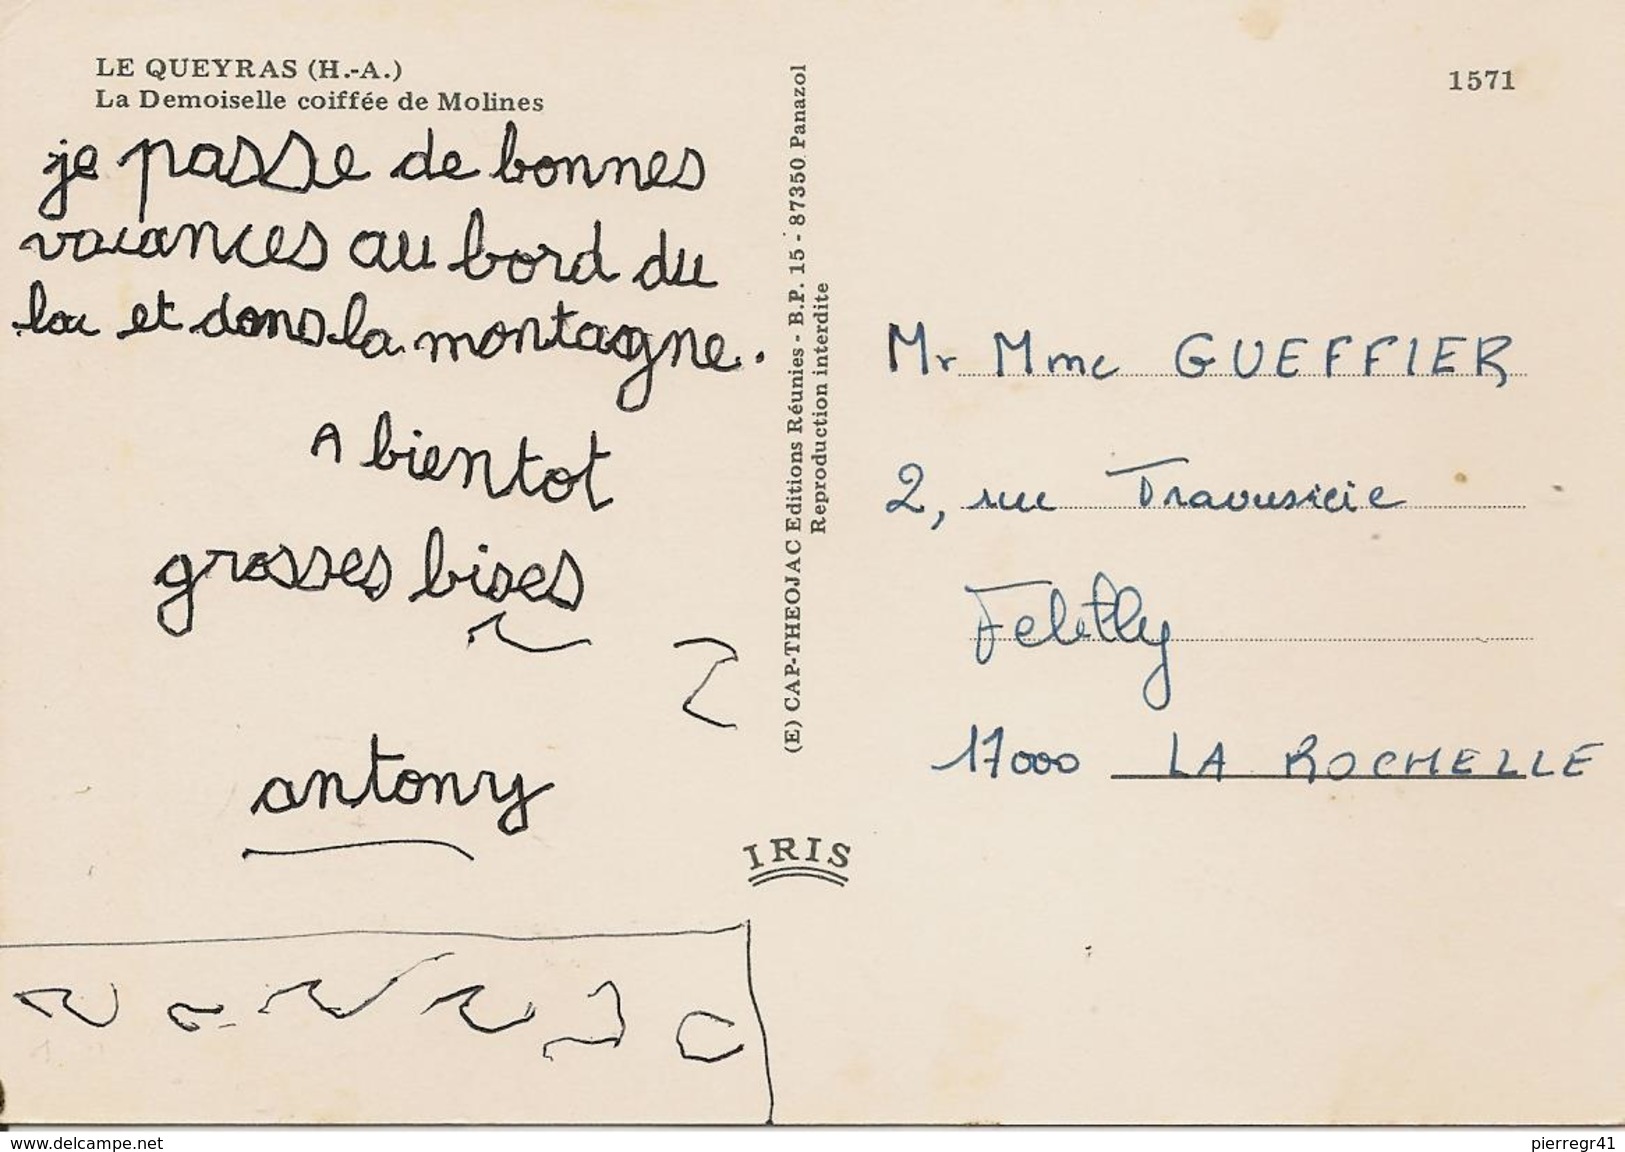 LE QUEYRAS (H.-A.)
La Demoiselle coiffée de Molines
1571
je passe de bonnes
vacances au bord du
lac et dans la montagne.
A bientot
grosses bises
antony
(E) CAP-THEOJAC Editions Réunies - B.P. 15 - 87350 Panazol
Reproduction interdite
IRIS
Mr Mme GUEFFIER
2, rue Traversière
17000 LA ROCHELLE
www.delcampe.net
pierregr41